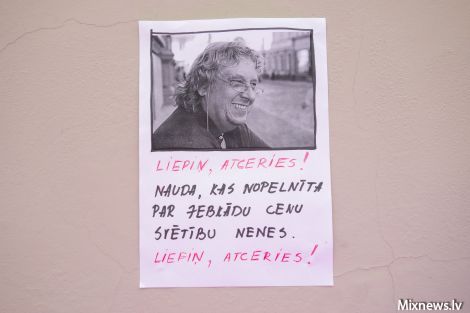 LIEPIŅ, ATCERIES!
NAUDA, KAS NOPELNĪTA
PAR JEBKĀDU CENU
SVĒTĪBU NENES.
LIEPIŅ, ATCERIES!
Mixnews.lv